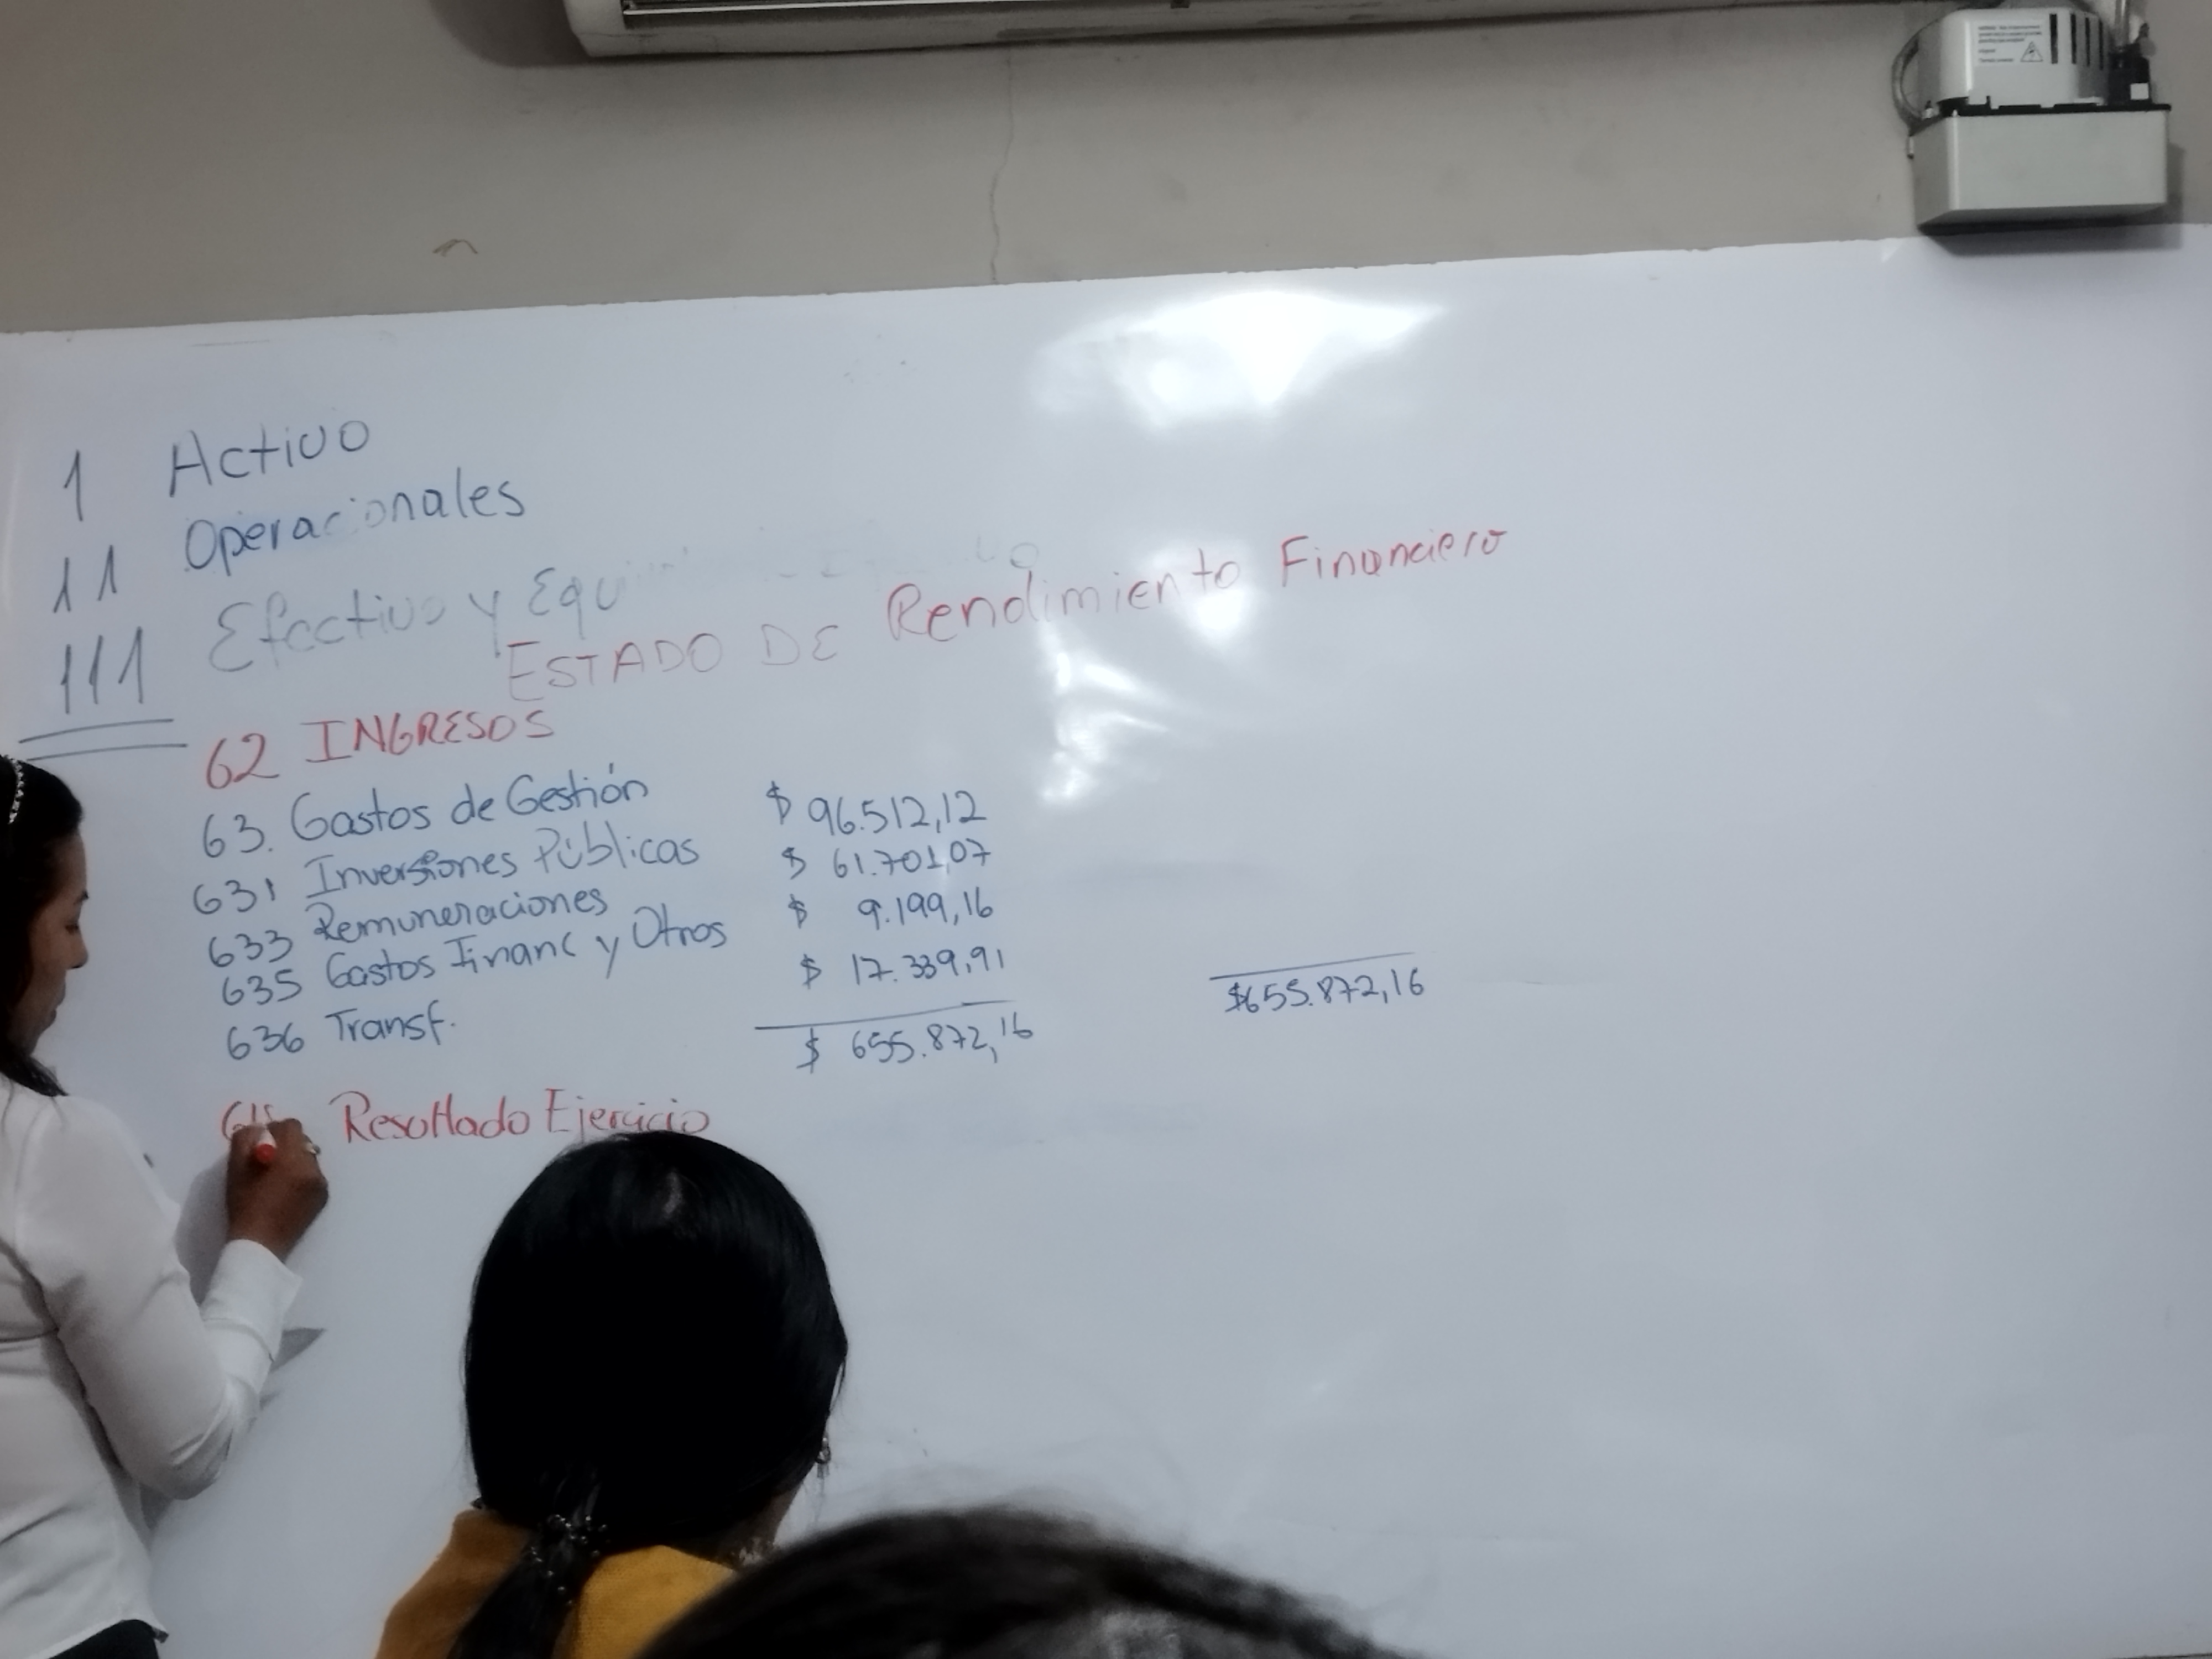 1 Activo
11 Operacionales
111 Efectivo y Equi
ESTADO DE Rendimiento Financiero
62 INGRESOS
63. Gastos de Gestión $ 96.512,12
631 Inversiones Públicas $ 61.701,07
633 Remuneraciones $ 9.199,16
635 Gastos Financ y Otros $ 17.339,91
636 Transf. $ 655.872,16 $655.872,16
Resultado Ejercicio